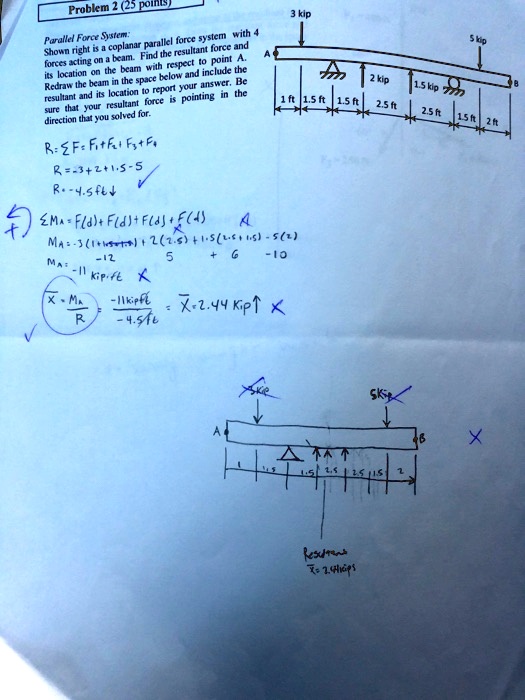 Problem 2 (25 points)
Parallel Force System:
Shown right is a coplanar parallel force system with 4
forces acting on a beam. Find the resultant force and
its location on the beam with respect to point A.
Redraw the beam in the space below and include the
resultant and its location to report your answer. Be
sure that your resultant force is pointing in the
direction that you solved for.
3 kip
5 kip
A
B
2 kip
1.5 kip
1 ft 1.5 ft 1.5 ft 2.5 ft 2.5 ft 1.5 ft 2 ft
R = ΣF = F₁+F₂+F₃+F₄
R = -3+2+1.5-5
R = -4.5ft↓ ✓
+ ΣMA = F(d)+F(d)+F(d)+F(d)
MA = -3(1+1.5+1.5)+2(2.5)+1.5(2.5+1.5)-5(2)
-12 5 + 6 -10
MA = -11 kip·ft X
X̄ = MA/R = -11kipft/-4.5ft = X̄=2.44 kip↑ X
3kip
5kip
A
B
X
1 1.5 1.5 2.5 2.5 1.5 2
Resultant
X̄= 2.44kips